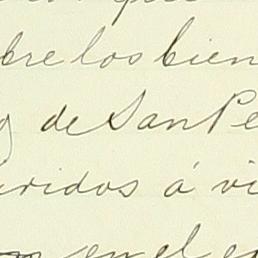 bre los bien
de San Pe
ridos á vi
en el